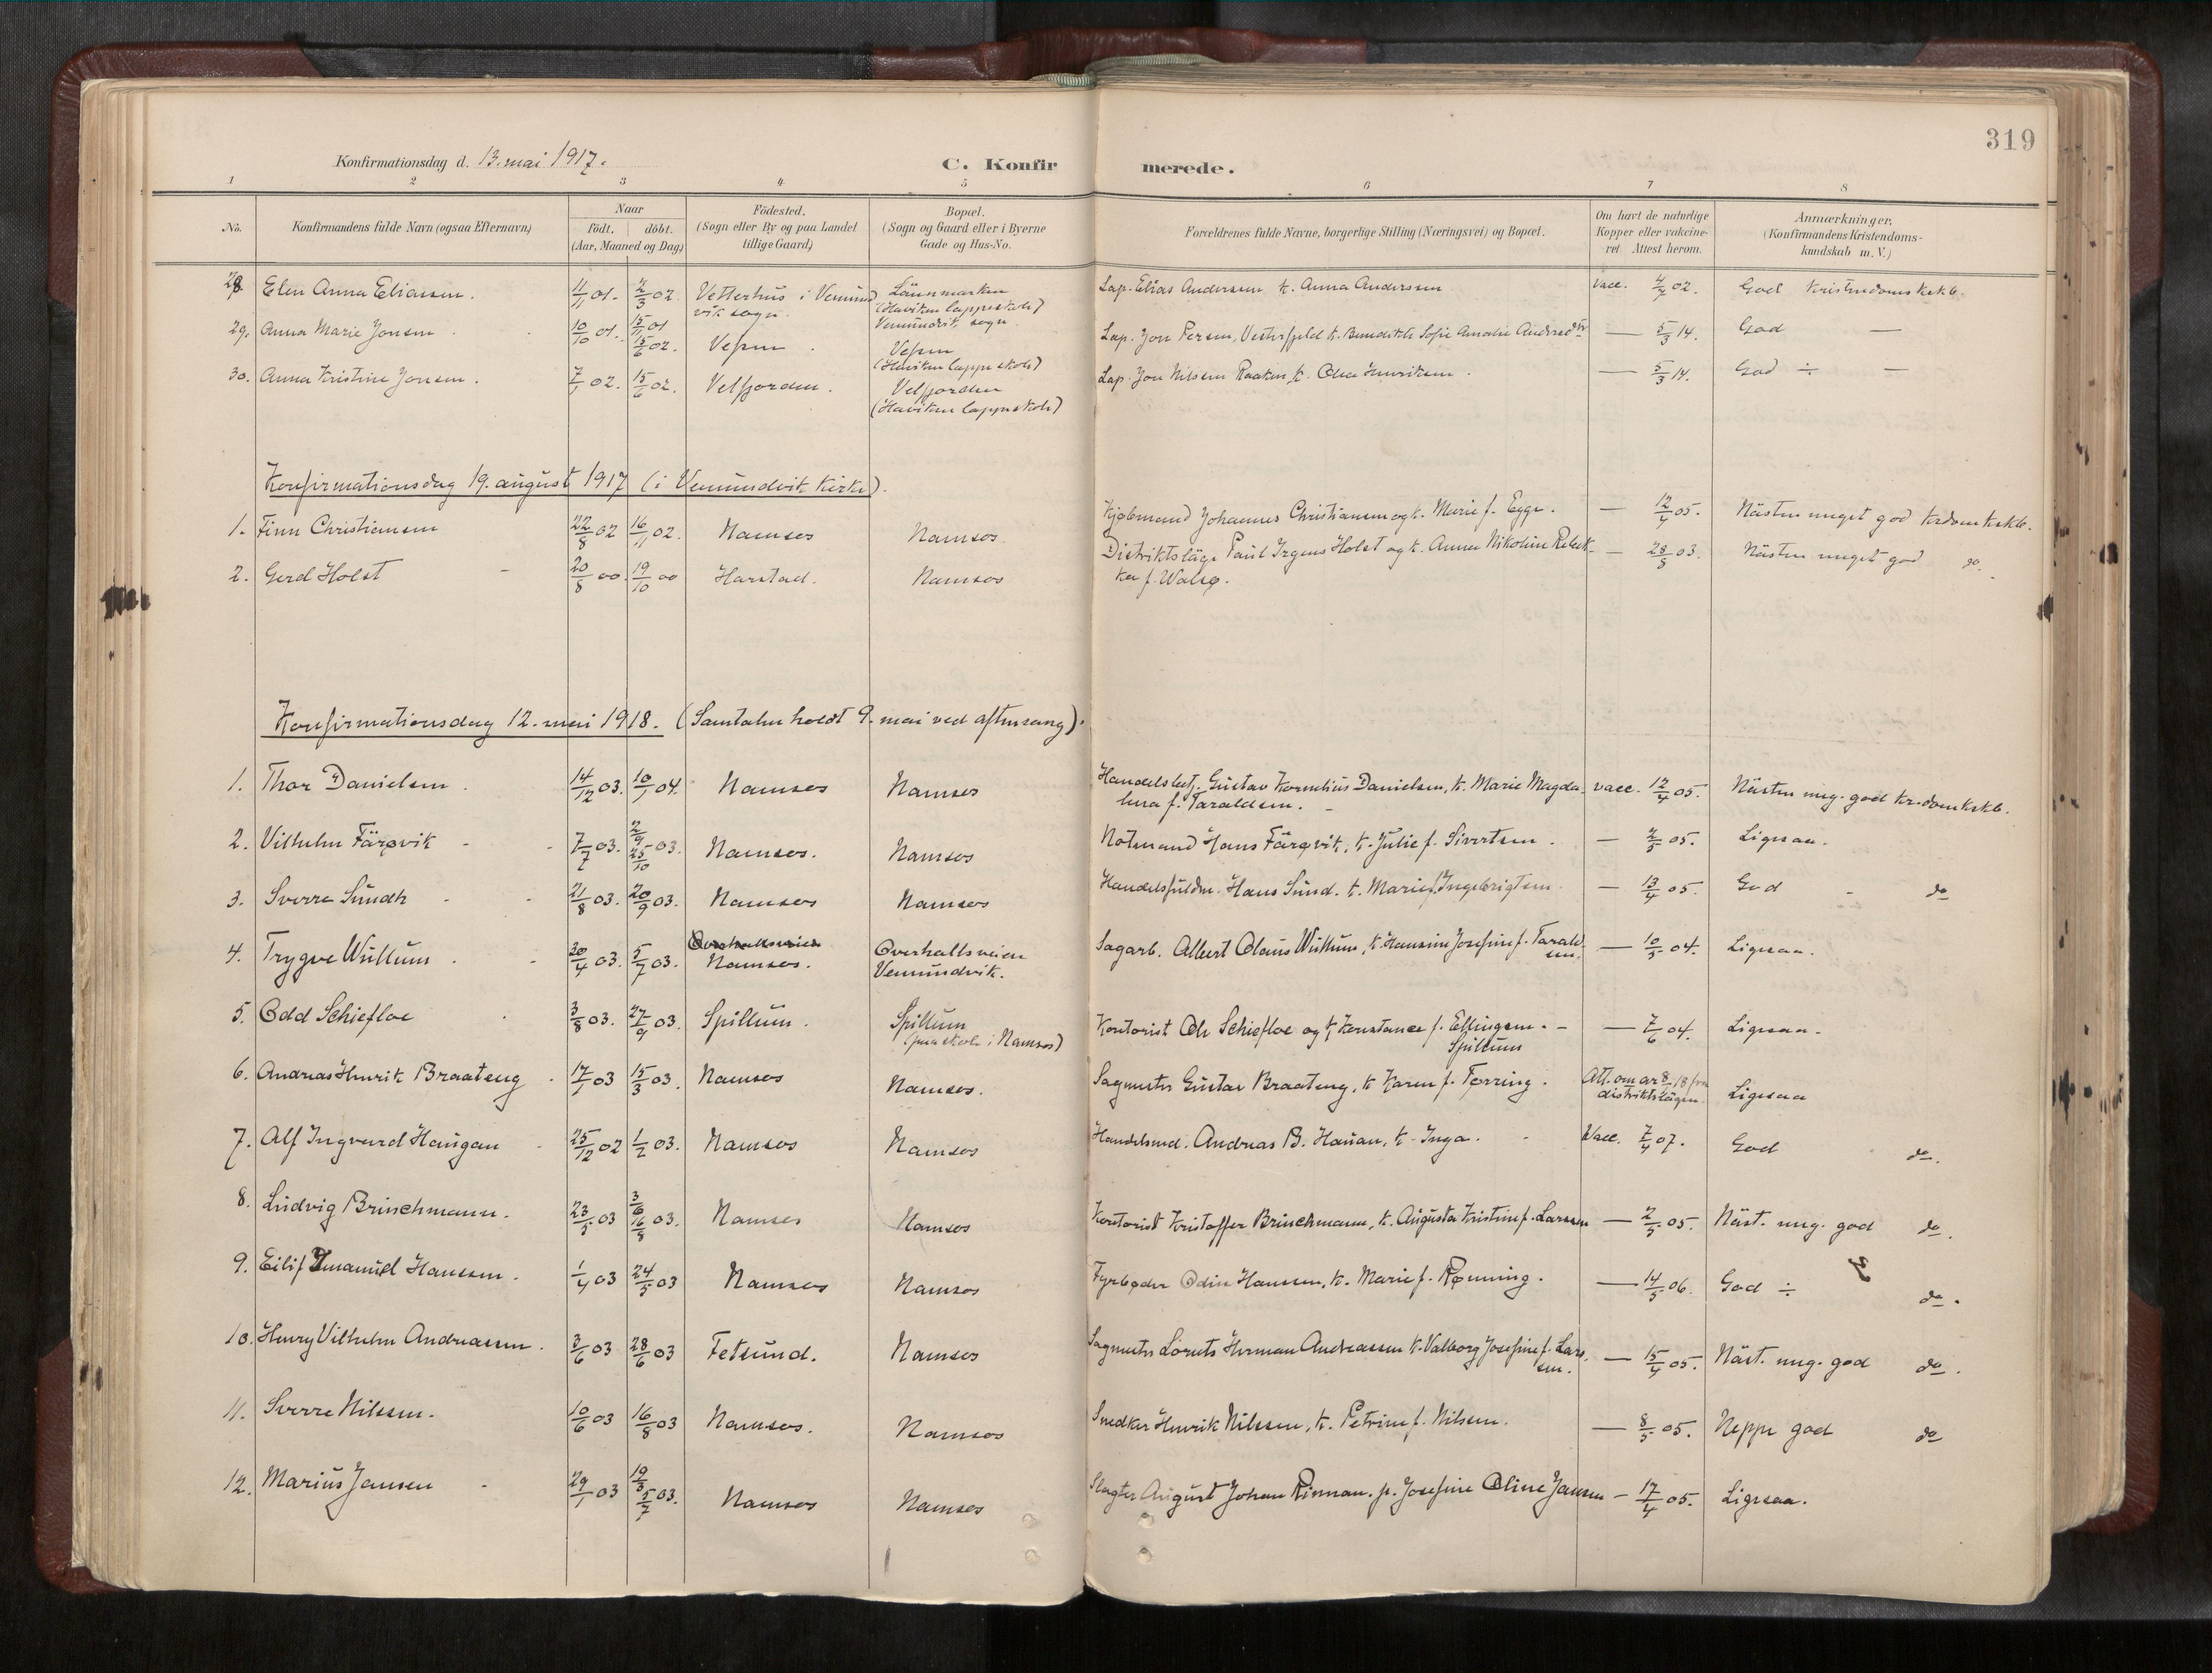 319
Konfirmationsdag d. 13. mai 1917.
C. Konfirmerede.
1 2 3 4 5 6 7 8
No. Konfirmandens fulde Navn (ogsaa Efternavn)
Naar
født. döbt.
(Aar, Maaned og Dag)
Födested.
(Sogn eller By og paa Landet
tillige Gaard)
Bopæl.
(Sogn og Gaard eller i Byerne
Gade og Hus-No.
Forældrenes fulde Navne, borgerlige Stilling (Næringsvei) og Bopæl.
Om havt de naturlige
Kopper eller vakcine-
ret. Attest herom.
Anmærkninger,
(Konfirmandens Kristendoms-
kundskab m. V.)
28 Elen Anna Eliassen. 11/11 01. 2/3 02. Vetterhus i Vemund
vik sogn.
(Havikens lappeskole)
Vemundvik sogn
Lap. Elias Andersen k. Anna Andersen vacc. 4/7 02. God Kristendomskskb.
29. Anna Marie Jonsen 10/10 01. 15/11 01 15/6 02. Vefsen. Vefsen
(Haviken lappeskole)
Lap. Jon Persen, Vesterfjeld k. Benedikte Sofie Amalie Andersdtr — 5/3 14. God —
30. Anna Kristine Jonsen. 7/1 02. 15/6 02. Velfjorden. Velfjorden
(Haviken lappeskole)
Lap. Jon Nilsen Raaken, k. Olea Henriksen. — 5/3 14. God ÷ —
Konfirmationsdag 19. august 1917 (i Vemundvik kirke).
1. Finn Christiansen 22/8 02 16/11 02. Namsos Namsos. Kjøbmand Johannes Christiansen og k. Marie f. Egge. — 12/4 05. Nästen meget god krdomkskb.
2. Gerd Holst 20/8 00. 19/10 00 Harstad. Namsos Distriktsläge Paul Irgens Holst og k. Anna Nikoline Rebek-
ka f. Walsø. — 28/8 03. Nästen meget god do.
Konfirmationsdag 12. mai 1918. (Samtalen holdt 9. mai ved aftensang).
1. Thor Danielsen. 14/12 03. 10/1 04. Namsos Namsos Handelsbest. Gustav Kornelius Danielsen, k. Marie Magda-
lena f. Taraldsen. vacc. 12/4 05. Nästen meg. god kr.domkskb.
2. Vilhelm Färøvik 7/7 03. 2/9 25/10 03. Namsos. Namsos Notmand Hans Färøvik, k. Julie f. Sivertsen. — 2/5 05. Ligesaa.
3. Sverre Sundh 21/8 03. 20/9 03. Namsos Namsos Handelsfuldm. Hans Sund. k. Marie f. Ingebrigtsen. — 13/4 05. God do
4. Trygve Wullum. 30/4 03. 5/7 03. Overhallsveien
Namsos. Overhallsveien
Vemundvik. Sagarb. Albert Olaus Wullum, k. Hansine Josefine f. Tarald
sen. — 10/5 04. Ligesaa.
5. Odd Schiefloe 3/8 03. 27/9 03. Spillum. Spillum
(paa skole i Namsos) Kontorist Ole Schiefloe og k. Konstance f. Ellingsen. —
Spillum — 7/6 04. Ligesaa.
6. Andreas Henrik Braateng 17/1 03 15/3 03. Namsos Namsos. Sagmester Gustav Braateng, k. Karen f. Tørring. Att. om ar 8/ 18 fra
distriktslägen. Ligesaa
7. Alf Ingvard Haugan 25/12 02 1/2 03. Namsos Namsos Handelsmd. Andreas B. Hauan, k. Inga. Vacc. 7/4 07. God do.
8. Ludvig Brinchmann. 23/5 03 3/6 16/8 03. Namsos Namsos Kontorist Kristoffer Brinchmann, k. Augusta Kristine f. Larssen — 2/5 05. Näst. meg. god do.
9. Eilif Emanuel Hanssen. 1/4 03 24/5 03 Namsos Namsos Fyrbøder Odin Hanssen, k. Marie f. Rønning. — 14/5 06. God ÷ do.
10. Henry Vilhelm Andreassen. 3/6 03 28/6 03 Fetsund. Namsos Sagmester Lorents Herman Andreassen k. Valborg Josefine f. Lars-
sen. — 15/4 05. Näst. meg. god do.
11. Sverre Nilssen. 10/6 03 16/8 03 Namsos. Namsos Snedker Henrik Nilssen, k. Petrine f. Nilsen. — 8/5 05. Neppe god do
12. Marius Jansen 29/1 03 19/3 5/7 03. Namsos Namsos Slagter August Johan Rinnan. p. Josefine Oline Jansen — 17/4 05. Ligesaa.